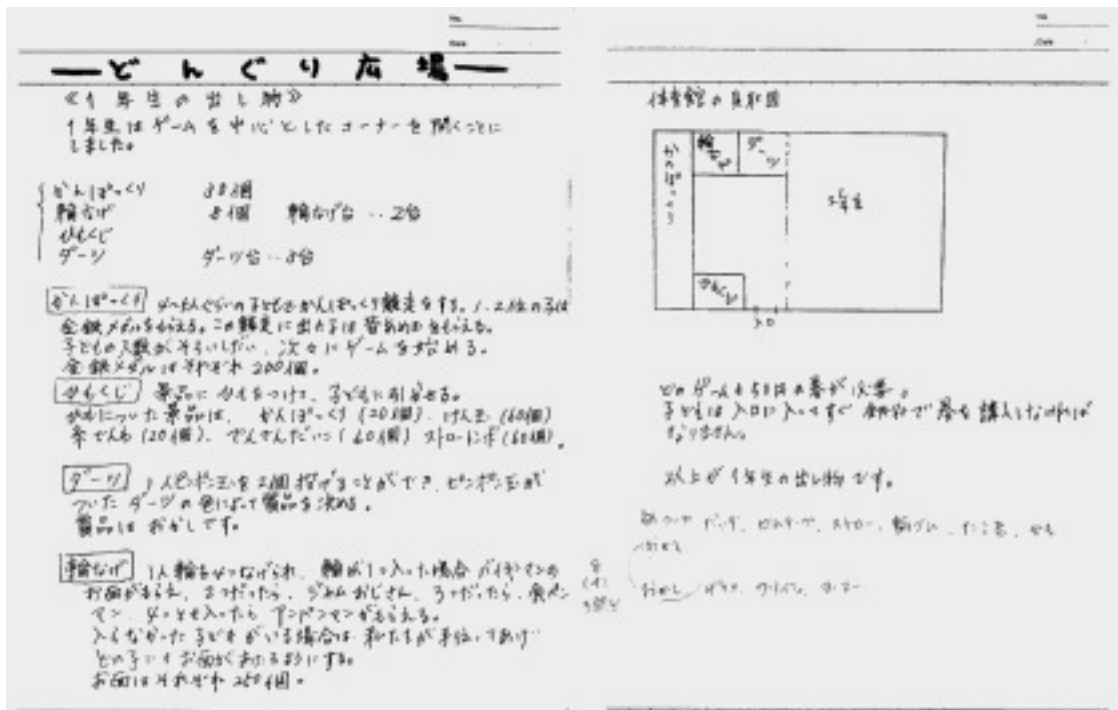 どんぐり広場
≪1年生の出し物≫
1年生はゲームを中心としたコーナーを開くことに
しました。
かんぽっくり 30個
輪なげ 8個 輪なげ台‥2台
ひもくじ
ダーツ ダーツ台‥3台
かんぽっくり くらいの子どもでかんぽっくり競走をする。1.2位の子は
金銀メダルをもらえる。この競走に出た子は皆あめをもらえる。
子どもの人数がそろいしだい、次々にゲームを始める。
金銀メダルはそれぞれ200個。
ひもくじ 景品にひもをつけて、子どもに引かせる。
ひもについた景品は、かんぽっくり(20個)、けん玉(60個)
糸でんわ(20個)、でんでんだいこ(60個)ストロートンボ(60個)。
ダーツ 1人ピンポン玉を2個投げることができ、ピンポン玉が
ついたダーツの色によって賞品を決める。
賞品はおかしです。
輪なげ 1人輪を4つなげられ、輪が1つ入った場合バイキンマンの
お面がもらえ、2つだったら、ジャムおじさん、3つだったら、食パン
マン、4つとも入ったらアンパンマンがもらえる。
入らなかった子どもがいる場合は私たちが手伝ってあげ
どの子にもお面があたるようにする。
お面はそれぞれ250個。
体育館の見取図
かんぽっくり
輪なげ
ダーツ
2年生
ひもくじ
入口
どのゲームも券が必要。
子どもは入口に入ってすぐ券を購入しなければ
なりません。
以上が1年生の出し物です。
セロテープ、ストロー、輪ゴム、たこ糸、ひも
おかし